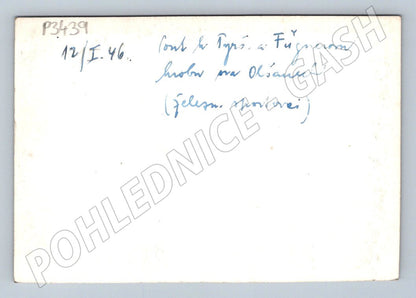 P3439
12/I.46. Cont k Tyrš. a Fügnerovu
hrobu na Olšanech
(železn. sportovci)
POHLEDNICE - GASH